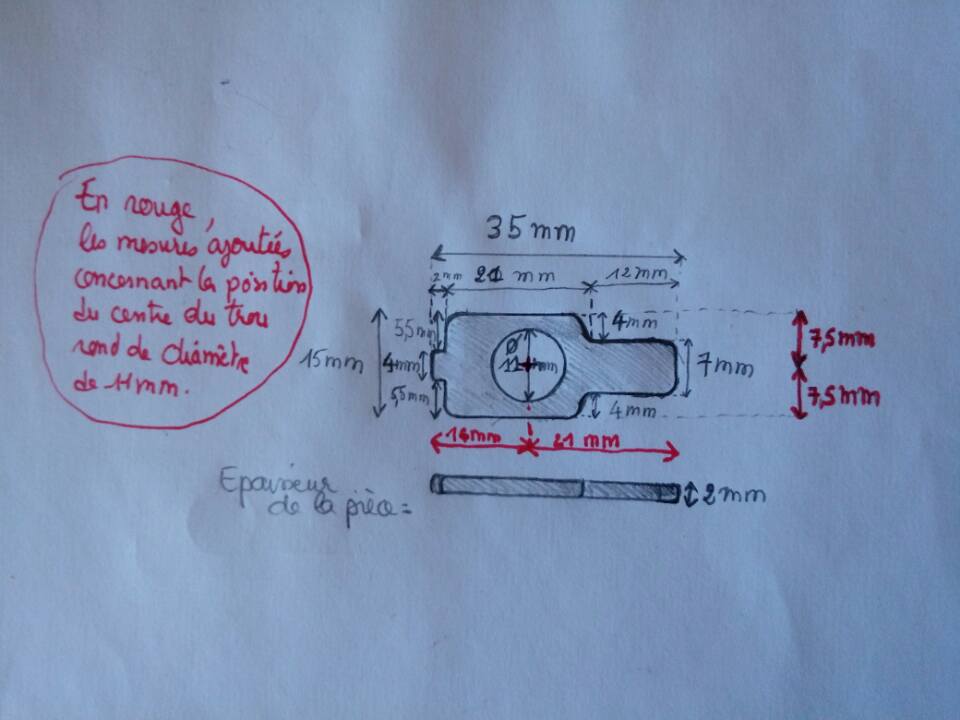 En rouge,
les mesures ajoutées
concernant la position
du centre du trou
rond de diamètre
de 11mm.
35 mm
2mm 21 mm 12mm
5,5mm 4mm
15mm 4mm Ø 7mm
11 mm
5,5mm 4mm
7,5mm
7,5mm
14mm 21 mm
Epaisseur
de la pièce =
2mm